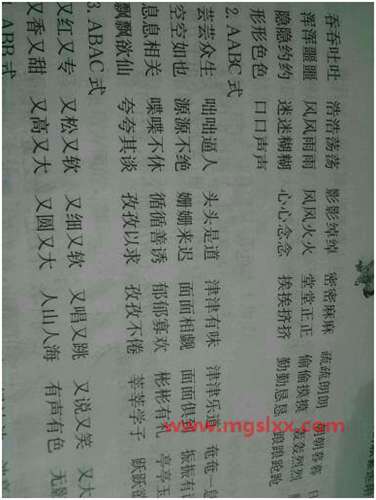 吞吞吐吐 浩浩荡荡 影影绰绰 密密麻麻 疏疏朗朗
浑浑噩噩 风风雨雨 风风火火 堂堂正正 朝朝暮暮
隐隐约约 迷迷糊糊 心心念念 偷偷摸摸 轰轰烈烈
形形色色 口口声声 挨挨挤挤 勤勤恳恳 踉踉跄跄
2. AABC 式
芸芸众生 咄咄逼人 头头是道 津津有味 津津乐道 奄奄一
空空如也 源源不绝 姗姗来迟 面面相觑 面面俱到 振振有
息息相关 喋喋不休 循循善诱 郁郁寡欢 彬彬有礼 亭亭玉
飘飘欲仙 夸夸其谈 孜孜以求 孜孜不倦 莘莘学子 跃跃欲
3. ABAC 式
又红又专 又松又软 又细又软 又唱又跳 又说又笑 又大
又香又甜 又高又大 又圆又大 人山人海 有声有色 无
ABB 式
www.mgslxx.com